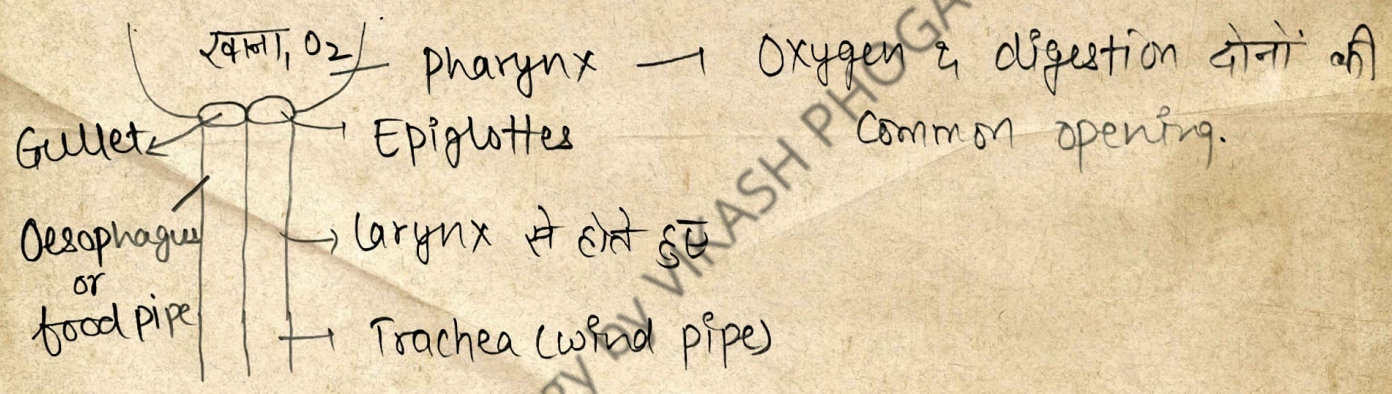 खाना, O2
Pharynx → Oxygen & digestion दोनों की
Common opening.
Gullet
Epiglottes
Oesophagus
or
food pipe
Larynx से होते हुए
Trachea (wind pipe)
gy by VIKASH PHOGA